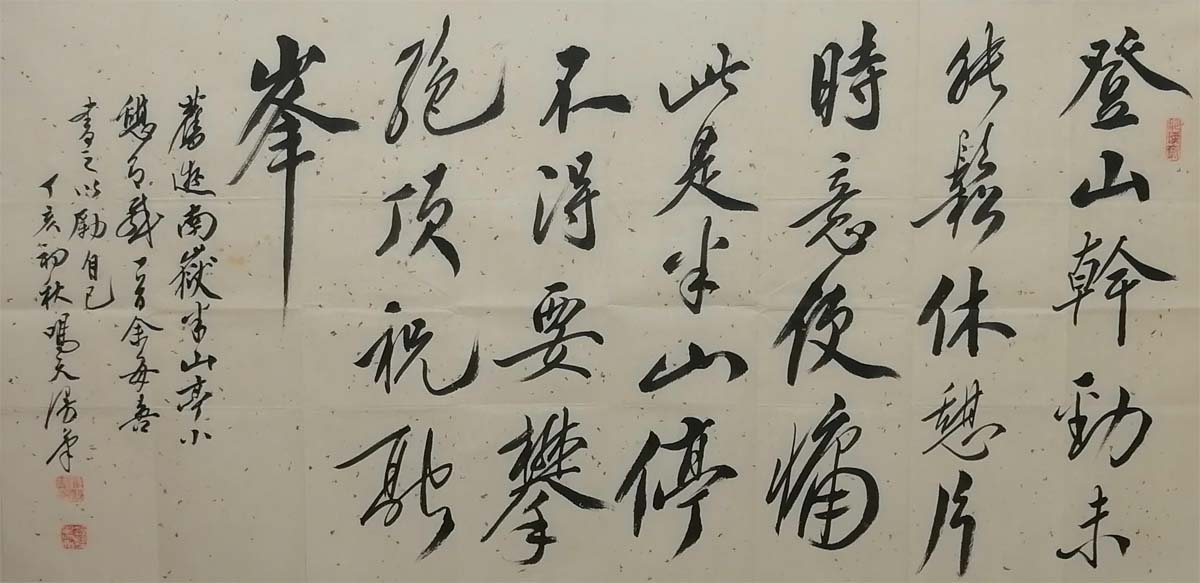 登山幹勁未
能鬆休憩片
時意便慵
此是半山停
不得要攀
絕頂祝融
峯
舊遊南嶽半山亭小
憩有感 余每喜
書之以勵自己
丁亥初秋 天湯